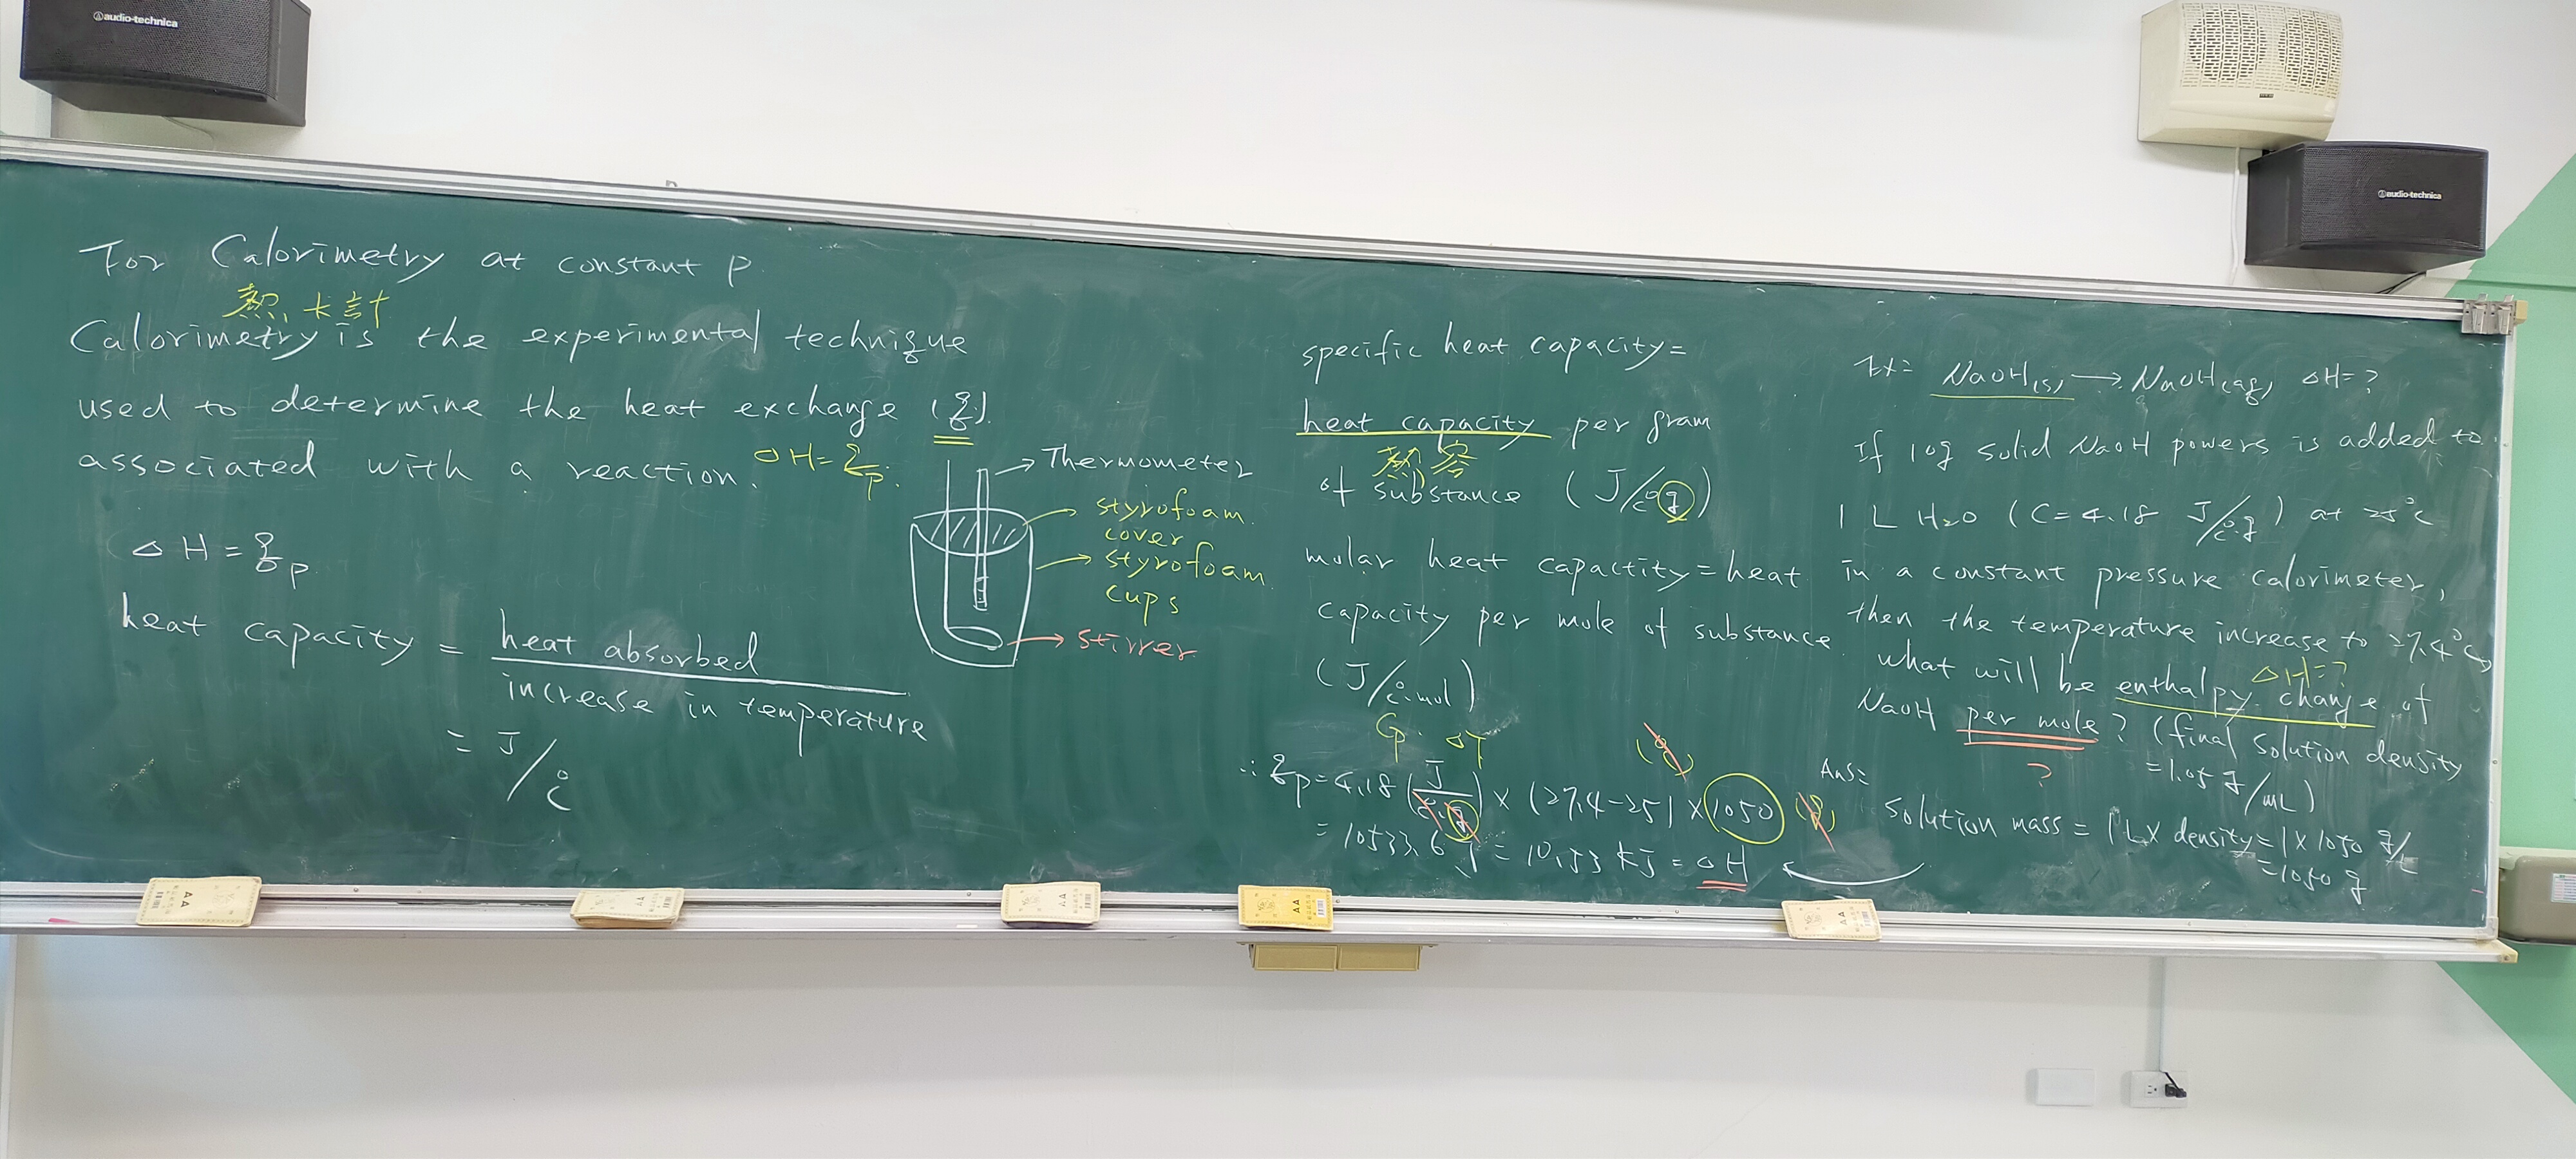 audio-technica
audio-technica
For Calorimetry at constant P
熱卡計
Calorimetry is the experimental technique
used to determine the heat exchange (q).
associated with a reaction. ΔH = qp.
ΔH = qp
heat capacity = heat absorbed / increase in temperature
= J/°C
Thermometer
styrofoam
cover
styrofoam
cups
stirrer
specific heat capacity =
heat capacity per gram
熱容
of substance (J/°C·g)
molar heat capactity = heat
capacity per mole of substance
(J/°C·mol)
Cp. ΔT
(°C)
∴ qp = 4.18 (J/°C·g) × (27.4-25) × 1050 (g)
= 10533.6 J = 10.53 kJ = ΔH
Ex: NaOH(s) → NaOH(aq) ΔH=?
If 10g solid NaOH powers is added to
1 L H2O (C=4.18 J/°C·g) at 25°C
in a constant pressure calorimeter,
then the temperature increase to 27.4°C,
ΔH=?
what will be enthalpy change of
NaOH per mole? (final solution density
= 1.05 g/mL)
?
Ans:
solution mass = 1L × density = 1 × 1050 g/L
= 1050 g